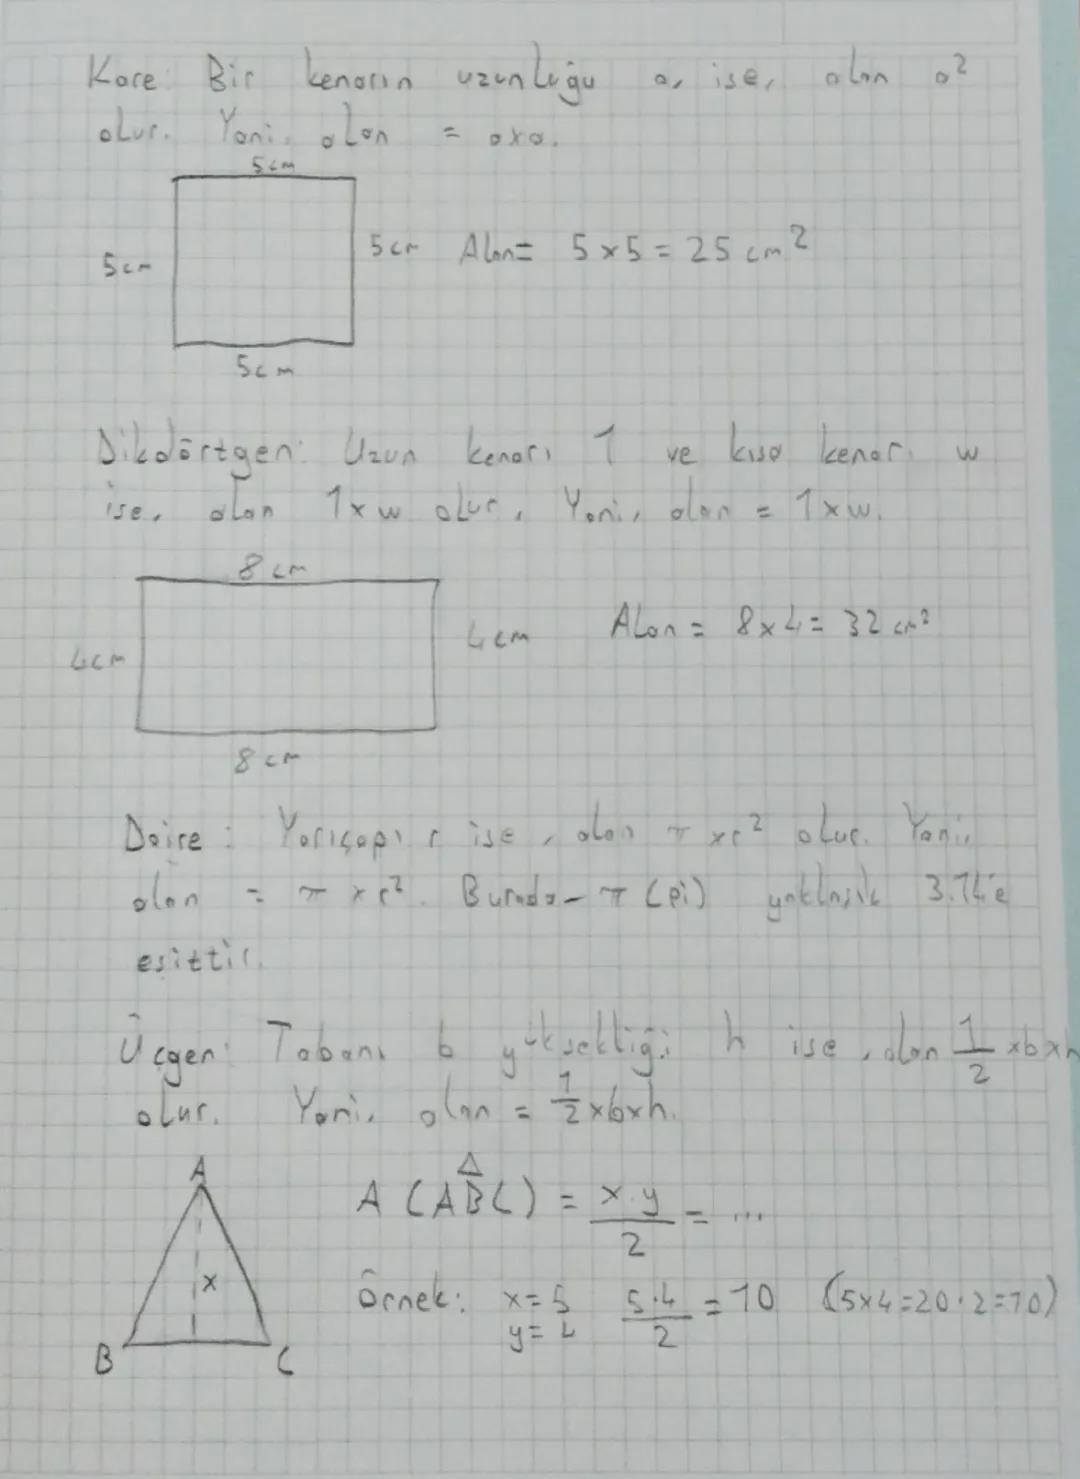 Kare: Bir kenarın uzunluğu a, ise, alan a²
olur. Yani, alan = axa.
5cm
5cm
5cm Alan= 5x5=25 cm²
5cm
Dikdörtgen: Uzun kenarı 1 ve kısa kenarı w
ise, alan 1xw olur, Yani, alan = 1xw.
8 cm
4cm
4cm Alan = 8x4= 32 cm²
8 cm
Daire: Yarıçapı r ise, alan π xr² olur. Yani,
alan = π xr². Burada- π (pi) yaklaşık 3.14'e
eşittir.
Üçgen: Tabanı b yüksekliği h ise, alan 1/2 xbxh
olur. Yani, alan = 1/2 xbxh.
A
x
B
C
A (AB̂C) = x.y/2 = ...
Örnek: x=5 5.4/2 =10 (5x4=20.2=10)
y=4